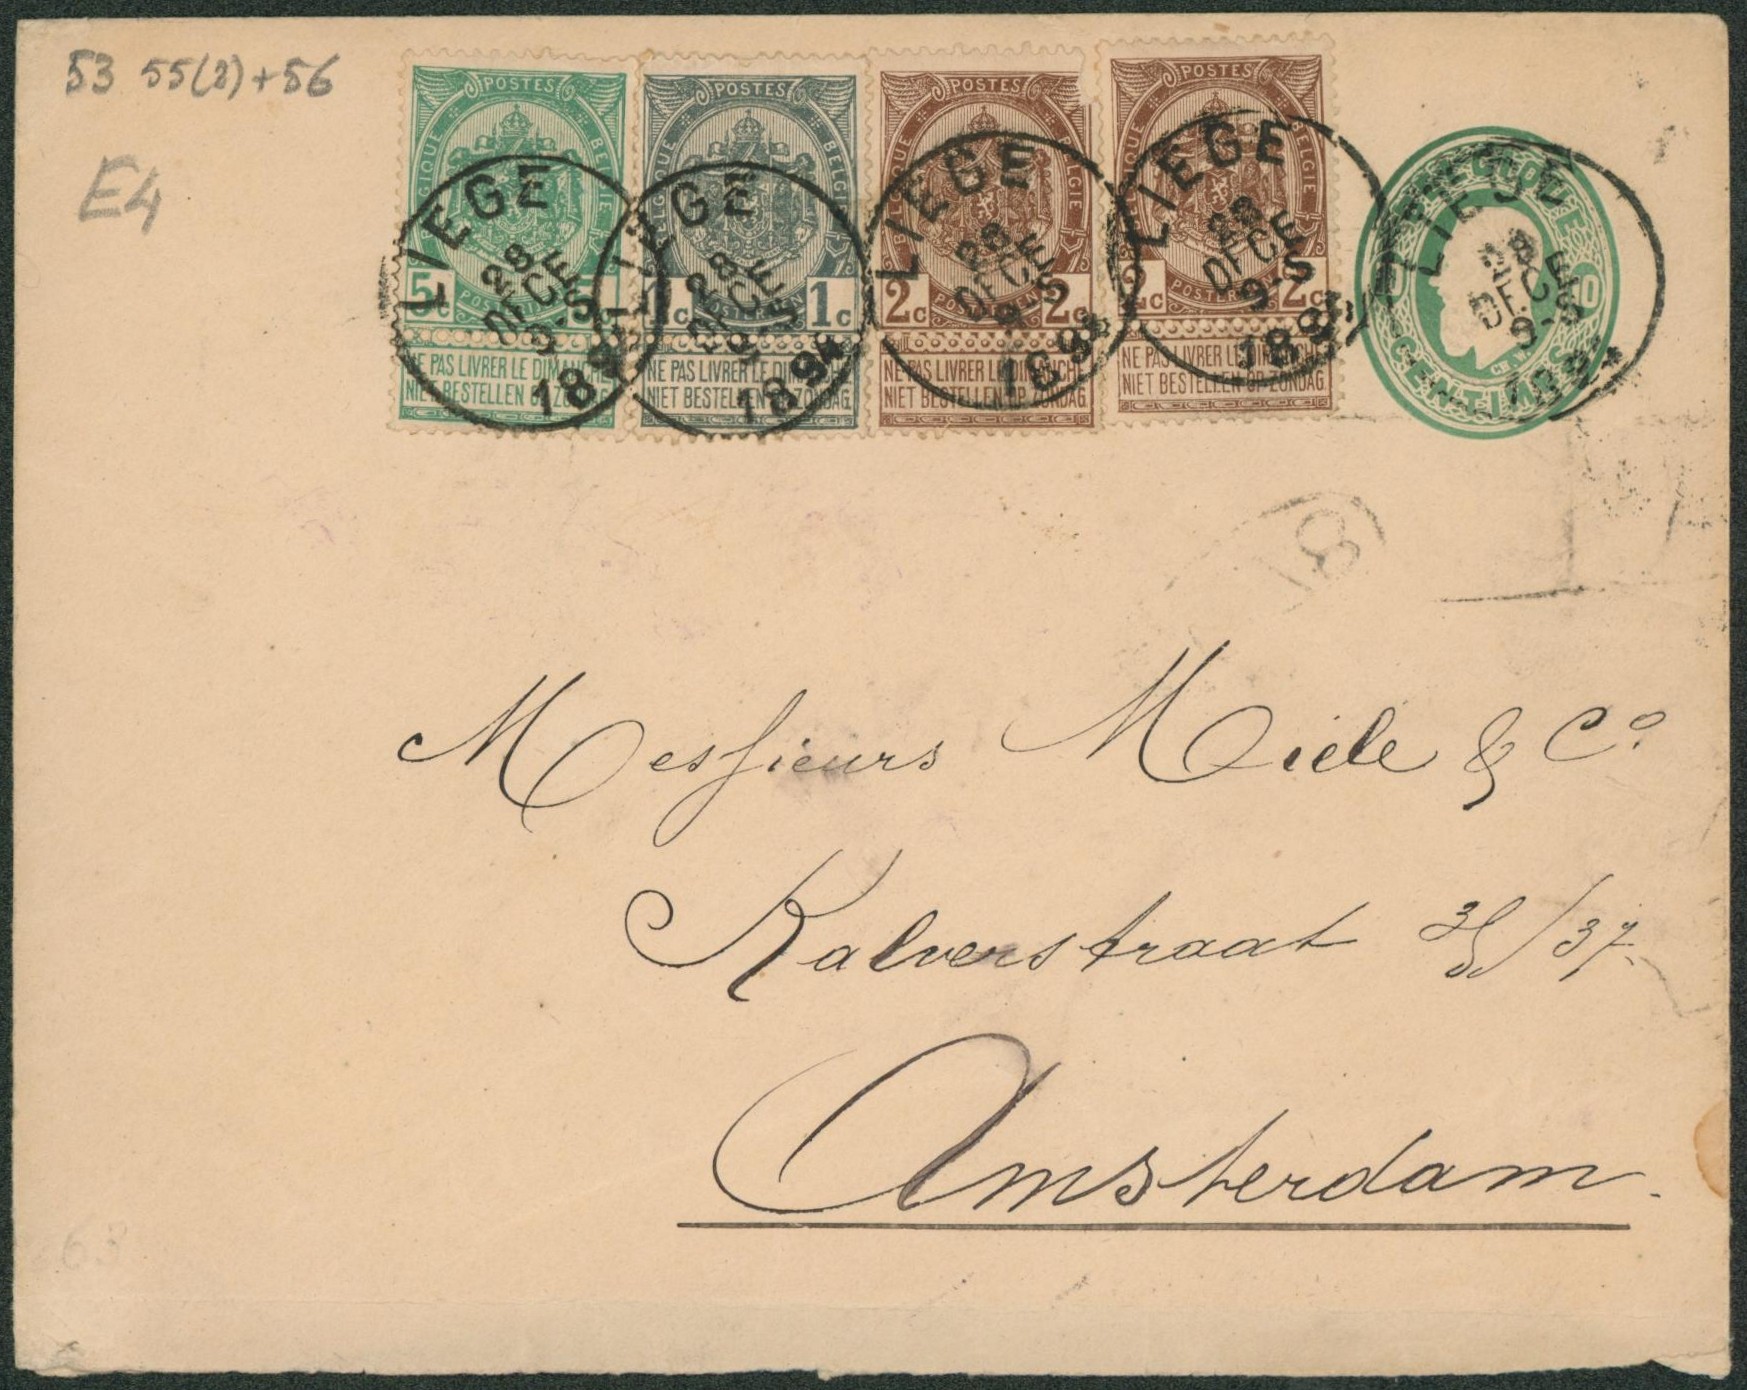 53 55(2)+56
E4
POSTES POSTES POSTES POSTES
BELGIQUE BELGIE BELGIQUE BELGIE BELGIQUE BELGIE BELGIE
5c 1c 1c 2c 2c 2c 2c
POSTERIJEN POSTERIJEN POSTERIJEN POSTERIJEN
NE PAS LIVRER LE DIMANCHE NE PAS LIVRER LE DIMANCHE NE PAS LIVRER LE DIMANCHE NE PAS LIVRER LE DIMANCHE
NIET BESTELLEN OP ZONDAG NIET BESTELLEN OP ZONDAG. NIET BESTELLEN OP ZONDAG NIET BESTELLEN OP ZONDAG.
LIEGE LIEGE LIEGE LIEGE LIEGE
28 28 28 28 28
DECE DECE DECE DECE DECE
9-S 9-S 9-S 9-S 9-S
1894 1894 1894 1894 1894
CENTIMES
Messieurs Miele & Co.
Kalverstraat 35/37.
Amsterdam.
63